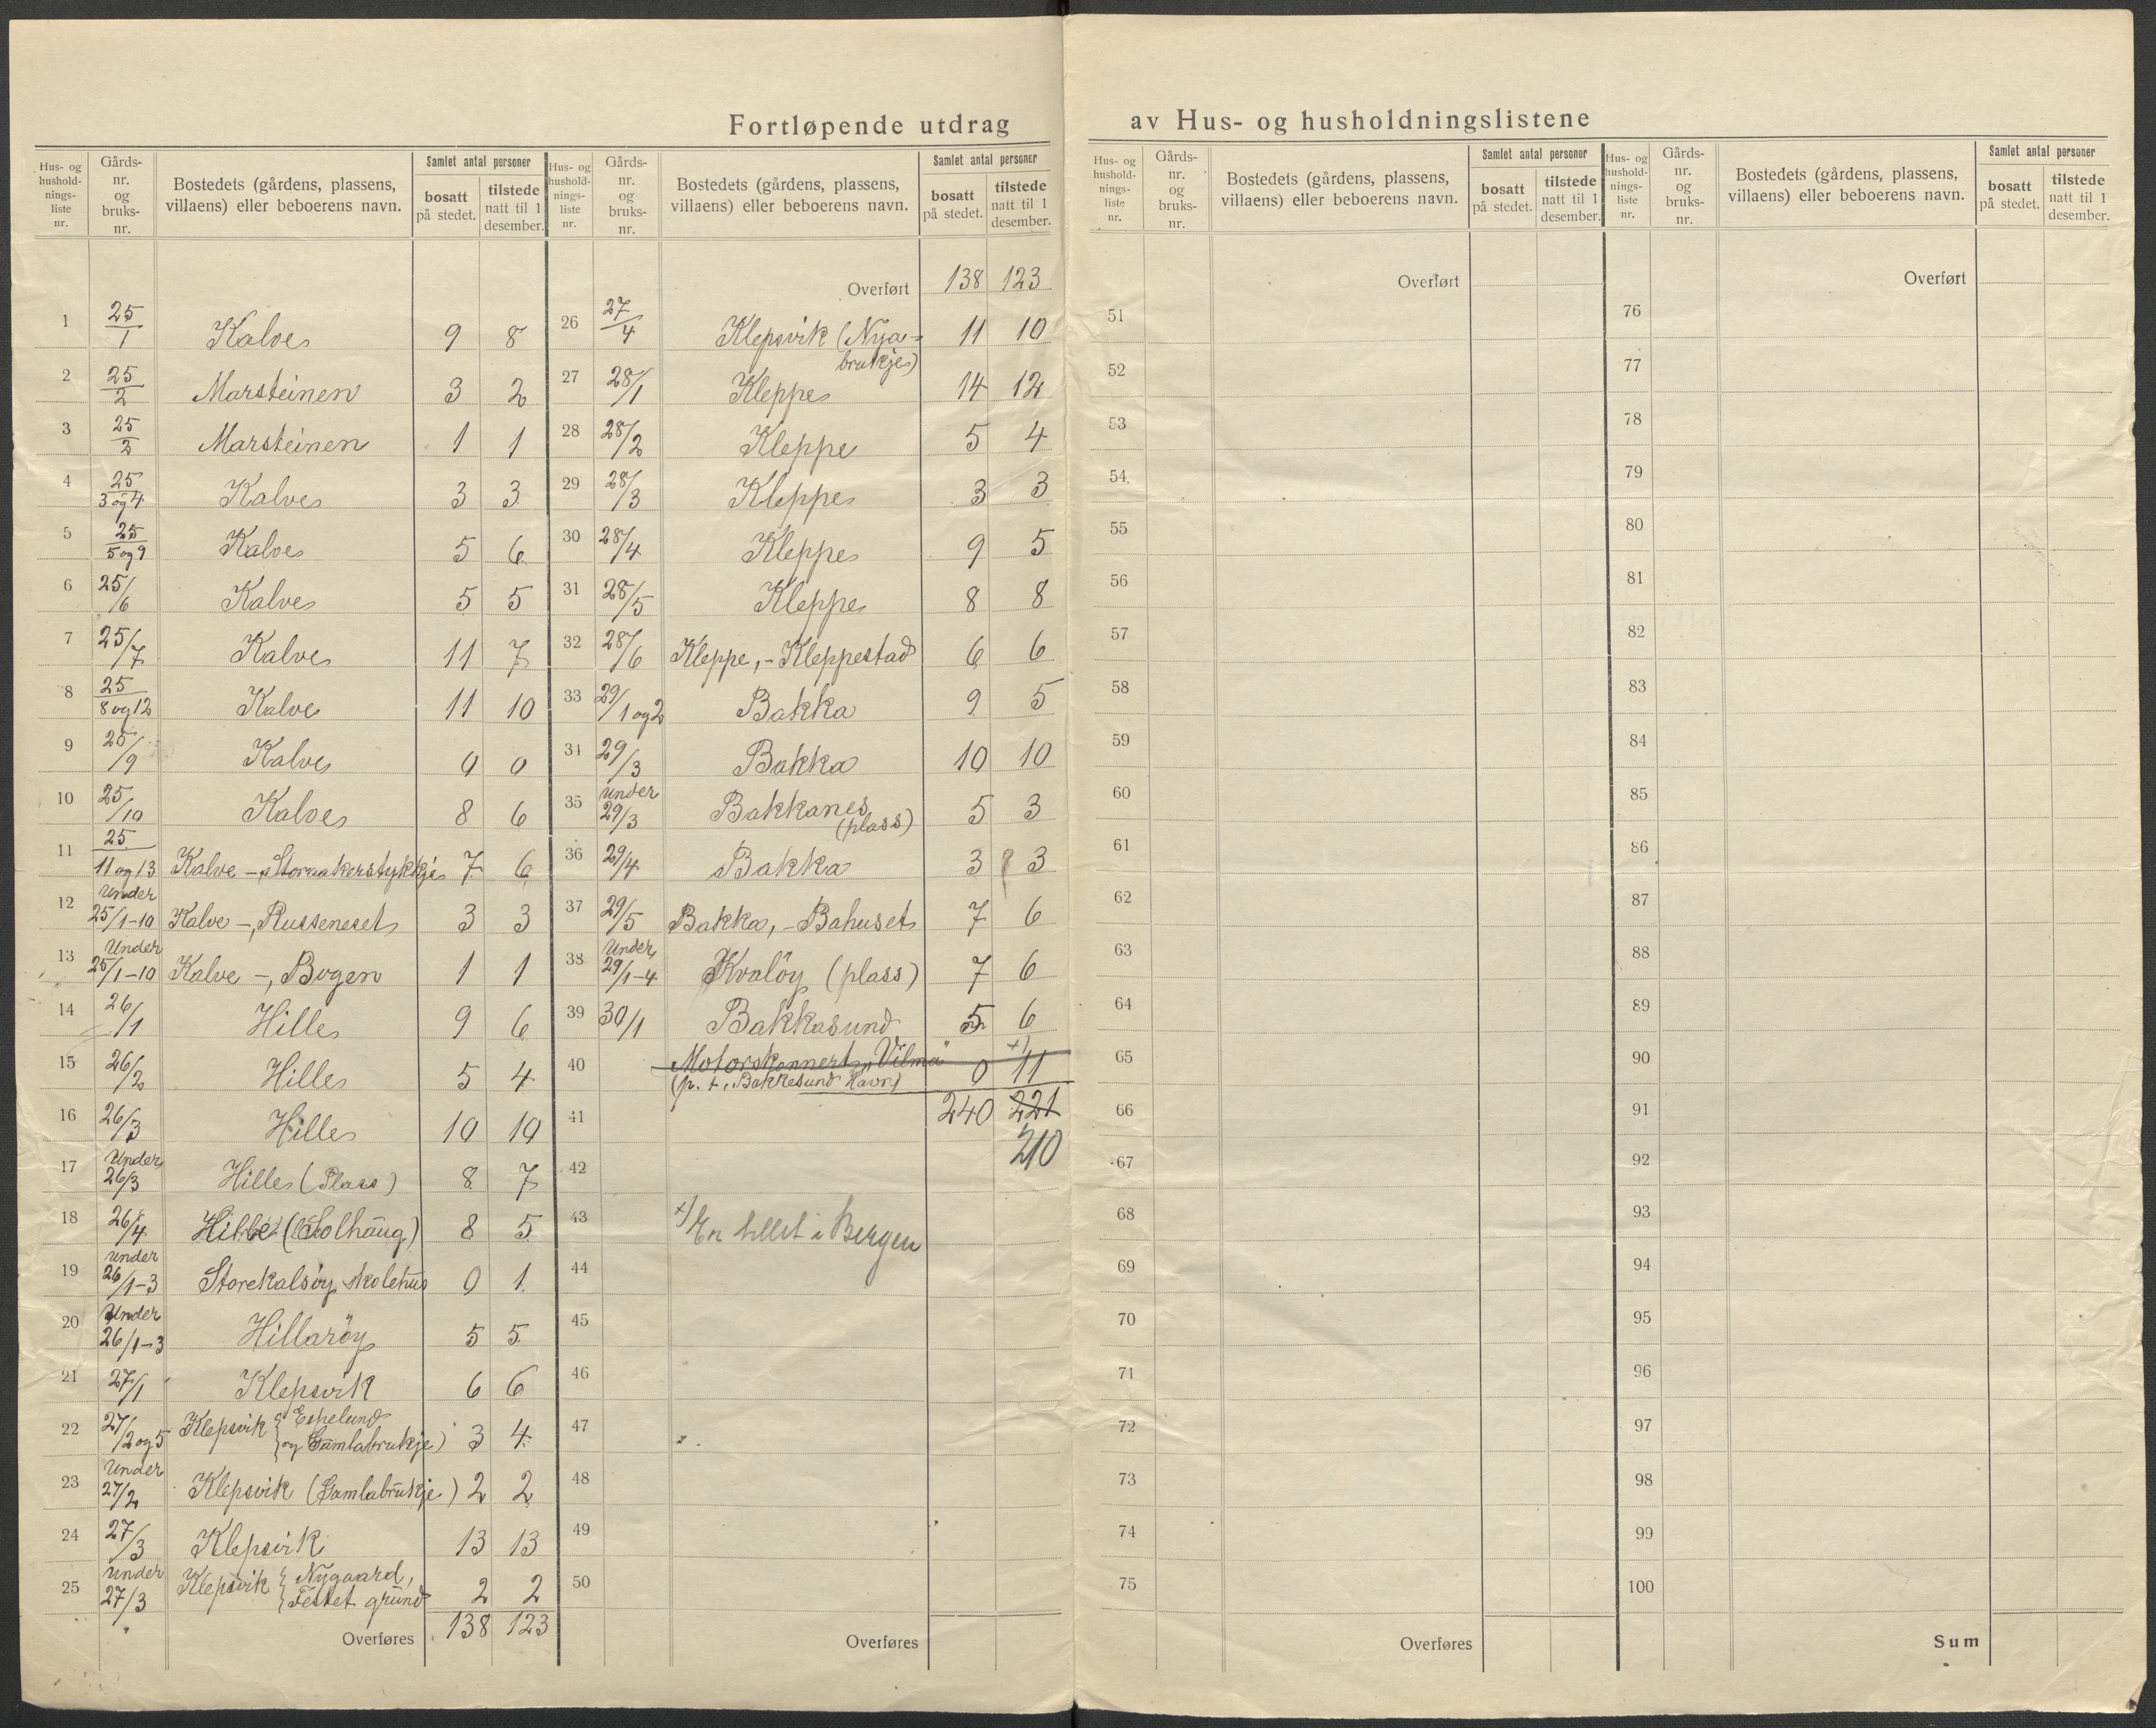 Fortløpende utdrag av Hus- og husholdningslistene
Hus- og husholdnings-liste nr. Gårds-nr. og bruks-nr. Bostedets (gårdens, plassens, villaens) eller beboerens navn. Samlet antal personer bosatt på stedet. tilstede natt til 1 desember.
1 25/1 Kalve 9 8
2 25/2 Marsteinen 3 2
3 25/2 Marsteinen 1 1
4 25/3 og 4 Kalve 3 3
5 25/5 og 9 Kalve 5 6
6 25/6 Kalve 5 5
7 25/7 Kalve 11 7
8 25/8 og 12 Kalve 11 10
9 25/9 Kalve 0 0
10 25/10 Kalve 8 6
11 25/11 og 13 Kalve - Storaakerstykkje 7 6
12 Under 25/1-10 Kalve -, Russeneset 3 3
13 Under 25/1-10 Kalve -, Bogen 1 1
14 26/1 Hille 9 6
15 26/2 Hille 5 4
16 26/3 Hille 10 10
17 Under 26/3 Hille (Plass) 8 7
18 26/4 Hille (Solhaug) 8 5
19 Under 26/1-3 Storekalsøy skolehus 0 1
20 Under 26/1-3 Hillaröy 5 5
21 27/1 Klepsvik 6 6
22 27/2 og 5 Klepsvik { Espelund
og Gamlabrukje) 3 4
23 Under 27/2 Klepsvik (Gamlabrukje) 2 2
24 27/3 Klepsvik 13 13
25 Under 27/3 Klepsvik { Nygaard,
Festet grund 2 2
Overføres 138 123
Hus- og husholdnings-liste nr. Gårds-nr. og bruks-nr. Bostedets (gårdens, plassens, villaens) eller beboerens navn. Samlet antal personer bosatt på stedet. tilstede natt til 1 desember.
Overført 138 123
26 27/4 Klepsvik (Nya-
brukje) 11 10
27 28/1 Kleppe 14 12
28 28/2 Kleppe 5 4
29 28/3 Kleppe 3 3
30 28/4 Kleppe 9 5
31 28/5 Kleppe 8 8
32 28/6 Kleppe, - Kleppestad 6 6
33 29/1 og 2 Bakka 9 5
34 29/3 Bakka 10 10
35 Under 29/3 Bakkanes
(plass) 5 3
36 29/4 Bakka 3 3
37 29/5 Bakka, - Bahuset 7 6
38 Under 29/1-4 Kvalöy (plass) 7 6
39 30/1 Bakkasund 5 6
40 Motorskonnert "Vilma" +)
(p. t. Bakkesund Havn) 0 11
41 240 221
210
42
43 +) Er tellet i Bergen
44
45
46
47
48
49
50
Overføres
Hus- og husholdnings-liste nr. Gårds-nr. og bruks-nr. Bostedets (gårdens, plassens, villaens) eller beboerens navn. Samlet antal personer bosatt på stedet. tilstede natt til 1 desember.
Overført
51
52
53
54
55
56
57
58
59
60
61
62
63
64
65
66
67
68
69
70
71
72
73
74
75
Overføres
Hus- og husholdnings-liste nr. Gårds-nr. og bruks-nr. Bostedets (gårdens, plassens, villaens) eller beboerens navn. Samlet antal personer bosatt på stedet. tilstede natt til 1 desember.
Overført
76
77
78
79
80
81
82
83
84
85
86
87
88
89
90
91
92
93
94
95
96
97
98
99
100
Sum